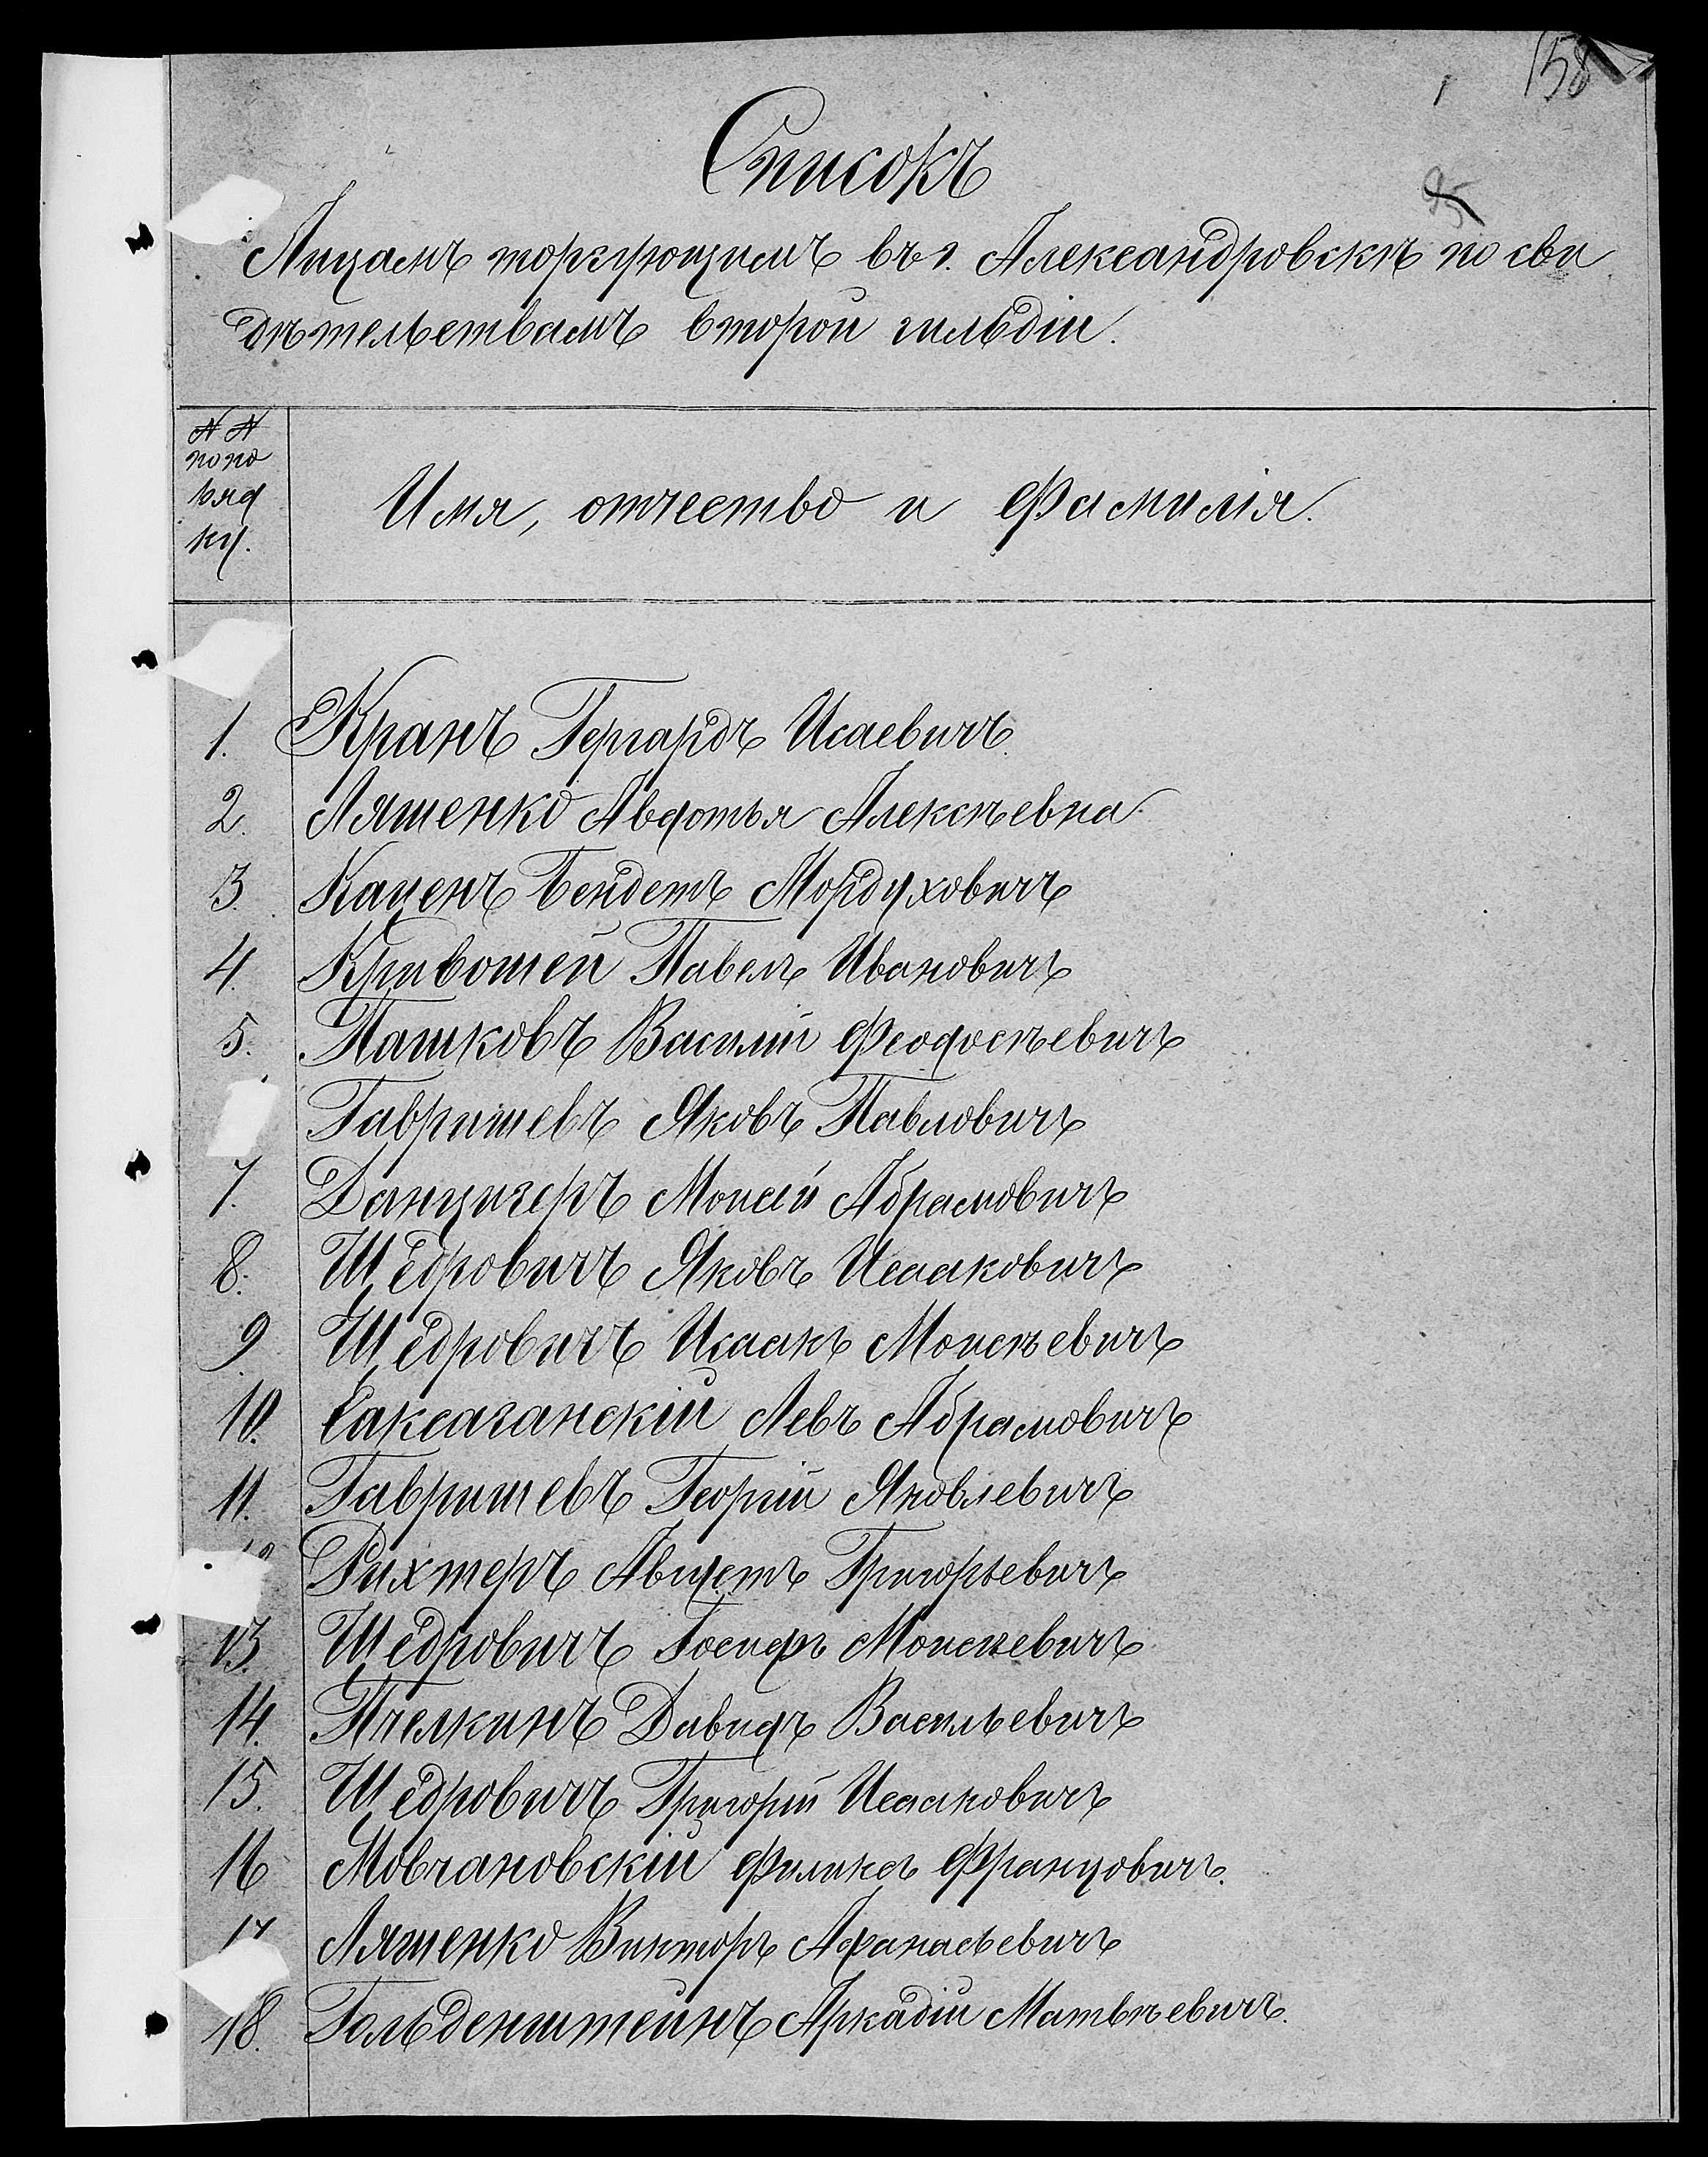 158
1
95
Списокъ
Лицамъ торгующимъ въ г. Александровскѣ по сви
дѣтельствамъ второй гильдіи.
NN
по по
ряд
ку.
Имя, отчество и Фамилія.
1. Кранъ Гергардъ Исаевичъ.
2. Ляшенко Авдотья Алексѣевна
3. Каценъ Бендетъ Мордуховичъ
4. Кривошей Павелъ Ивановичъ
5. Пашковъ Василій Феодосѣевичъ
Гавришевъ Яковъ Павловичъ
7. Данцигеръ Моисей Абрамовичъ
8. Щедровичъ Яковъ Исааковичъ
9. Щедровичъ Исаакъ Моисѣевичъ
10. Саксаганскій Левъ Абрамовичъ
11. Гавришевъ Георгій Яковлевичъ
Рихтеръ Августъ Григорьевичъ
13. Щедровичъ Іосифъ Моисѣевичъ
14. Пчелкинъ Давидъ Васильевичъ
15. Щедровичъ Григорій Исааковичъ
16 Мовчановскій Филиксъ Францовичъ.
17 Ляшенко Викторъ Афанасьевичъ
18. Гольденштейнъ Аркадій Матвѣевичъ.